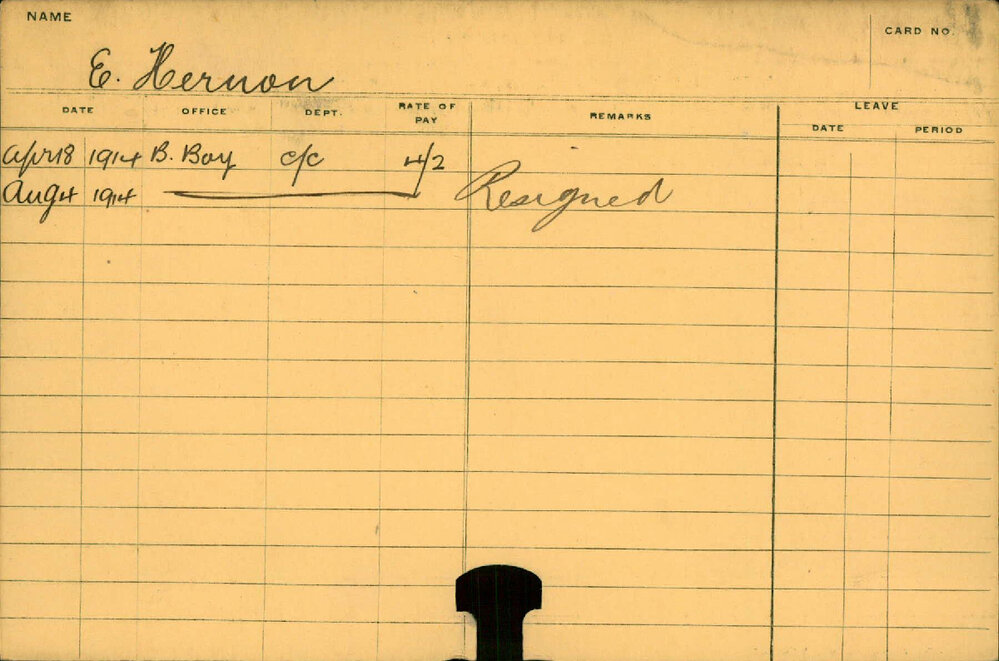 NAME
CARD NO.
E. Hernon
DATE OFFICE DEPT. RATE OF PAY REMARKS LEAVE
DATE PERIOD
Apr 18 1914 B. Boy c/c 4/2
Aug 4 1914 Resigned